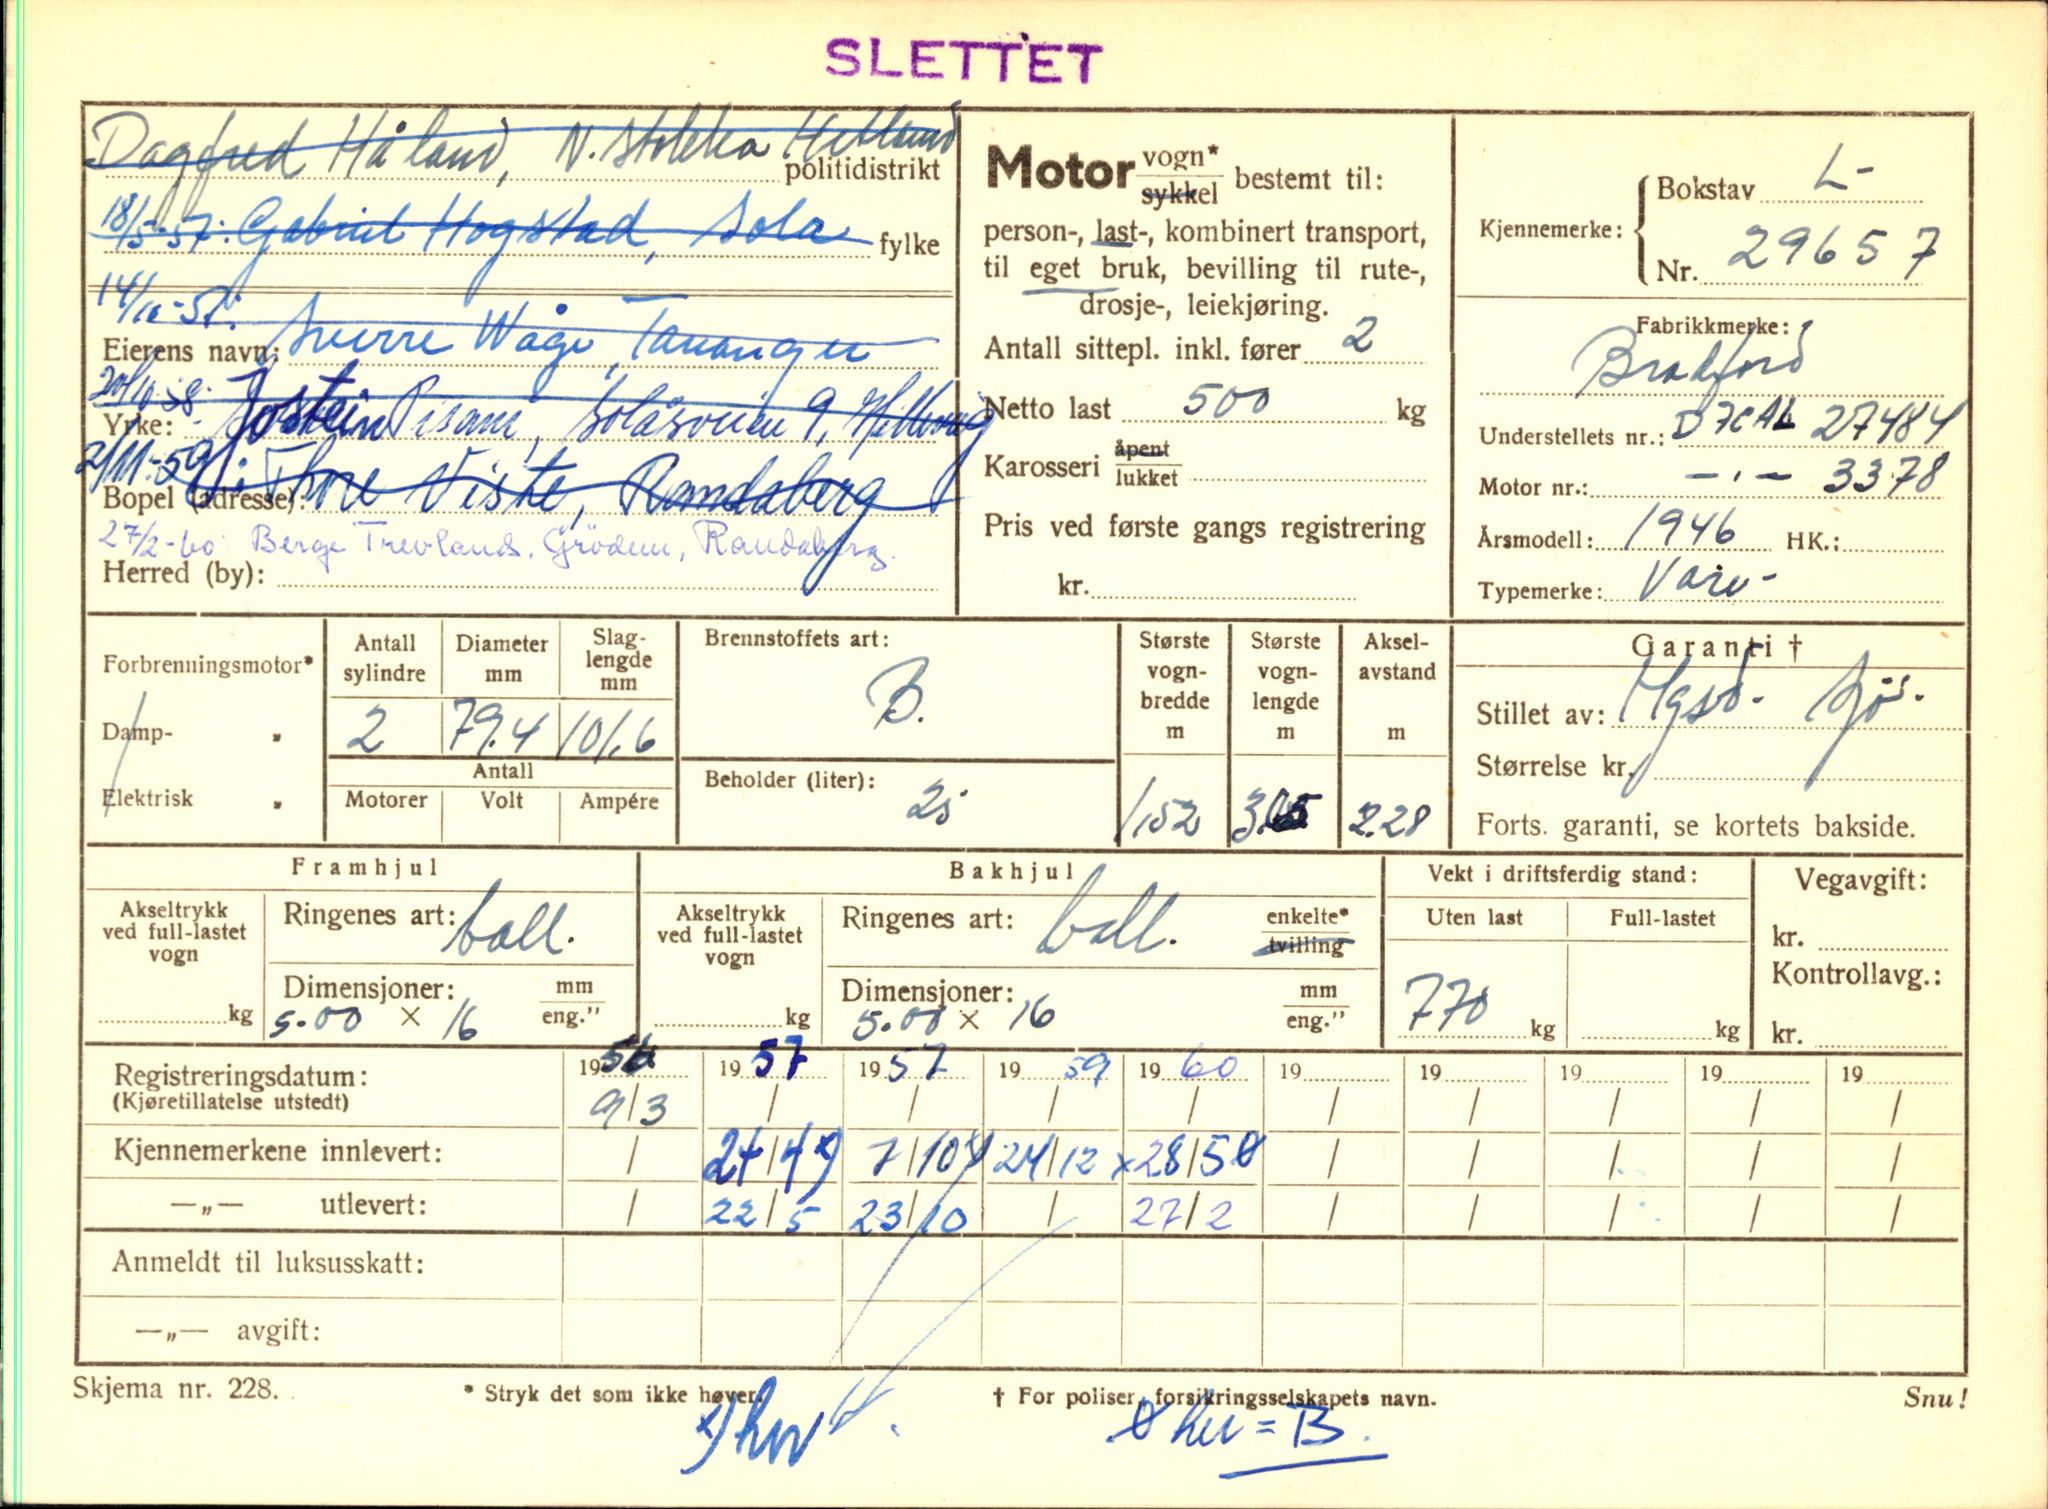 SLETTET
Dagfred Håland, N. Stokka Hetland
politidistrikt
18/5-57: Gabriel Hogstad, Sola
fylke
Sverre Våge, Tananger
Eierens navn:
20/10-58 Jostein Solåsveien 9, Hillevåg
Yrke:
2/11-59: Thore Viste, Randaberg
Bopel (adresse):
27/2-60 Berge Grödem, Randaberg.
Herred (by):
Motor vogn* sykkel bestemt til:
person-, last-, kombinert transport,
til eget bruk, bevilling til rute-,
drosje-, leiekjøring.
Antall sittepl. inkl. fører 2
Netto last 500 kg
Karosseri åpent lukket
Pris ved første gangs registrering
kr.
Kjennemerke: Bokstav L-
Nr. 29657
Fabrikkmerke:
Bradford
Understellets nr.: D7CAL 27484
Motor nr.: — " — 3378
Årsmodell: 1946 HK.:
Typemerke: Vare-
Forbrenningsmotor*
Damp- "
Elektrisk "
Antall sylindre Diameter mm Slag-lengde mm
2 79.4 101.6
Antall
Motorer Volt Ampére
Brennstoffets art:
B.
Beholder (liter):
25
Største vogn-bredde m Største vogn-lengde m Aksel-avstand m
1,52 2.28
Garanti †
Stillet av:
Størrelse kr.
Forts. garanti, se kortets bakside.
Framhjul
Akseltrykk ved full-lastet vogn
kg
Ringenes art: ball.
Dimensjoner: mm eng."
5.00 × 16
Bakhjul
Akseltrykk ved full-lastet vogn
kg
Ringenes art: ball. enkelte* tvilling
Dimensjoner: mm eng."
5.00 × 16
Vekt i driftsferdig stand:
Uten last Full-lastet
770 kg kg
Vegavgift:
kr.
Kontrollavg.:
kr.
Registreringsdatum: 1956 1957 1957 1959 1960 19 19 19 19 19
(Kjøretillatelse utstedt) 9/3 / / / / / / / / /
Kjennemerkene innlevert: / 24/4 x) 7/10 24/12 x28/5 / / / / /
—„— utlevert: / 22/5 23/10 / 27/2 / / / / /
Anmeldt til luksusskatt:
—„— avgift:
Skjema nr. 228.
* Stryk det som ikke høver.
† For poliser forsikringsselskapets navn.
Snu!
= B.